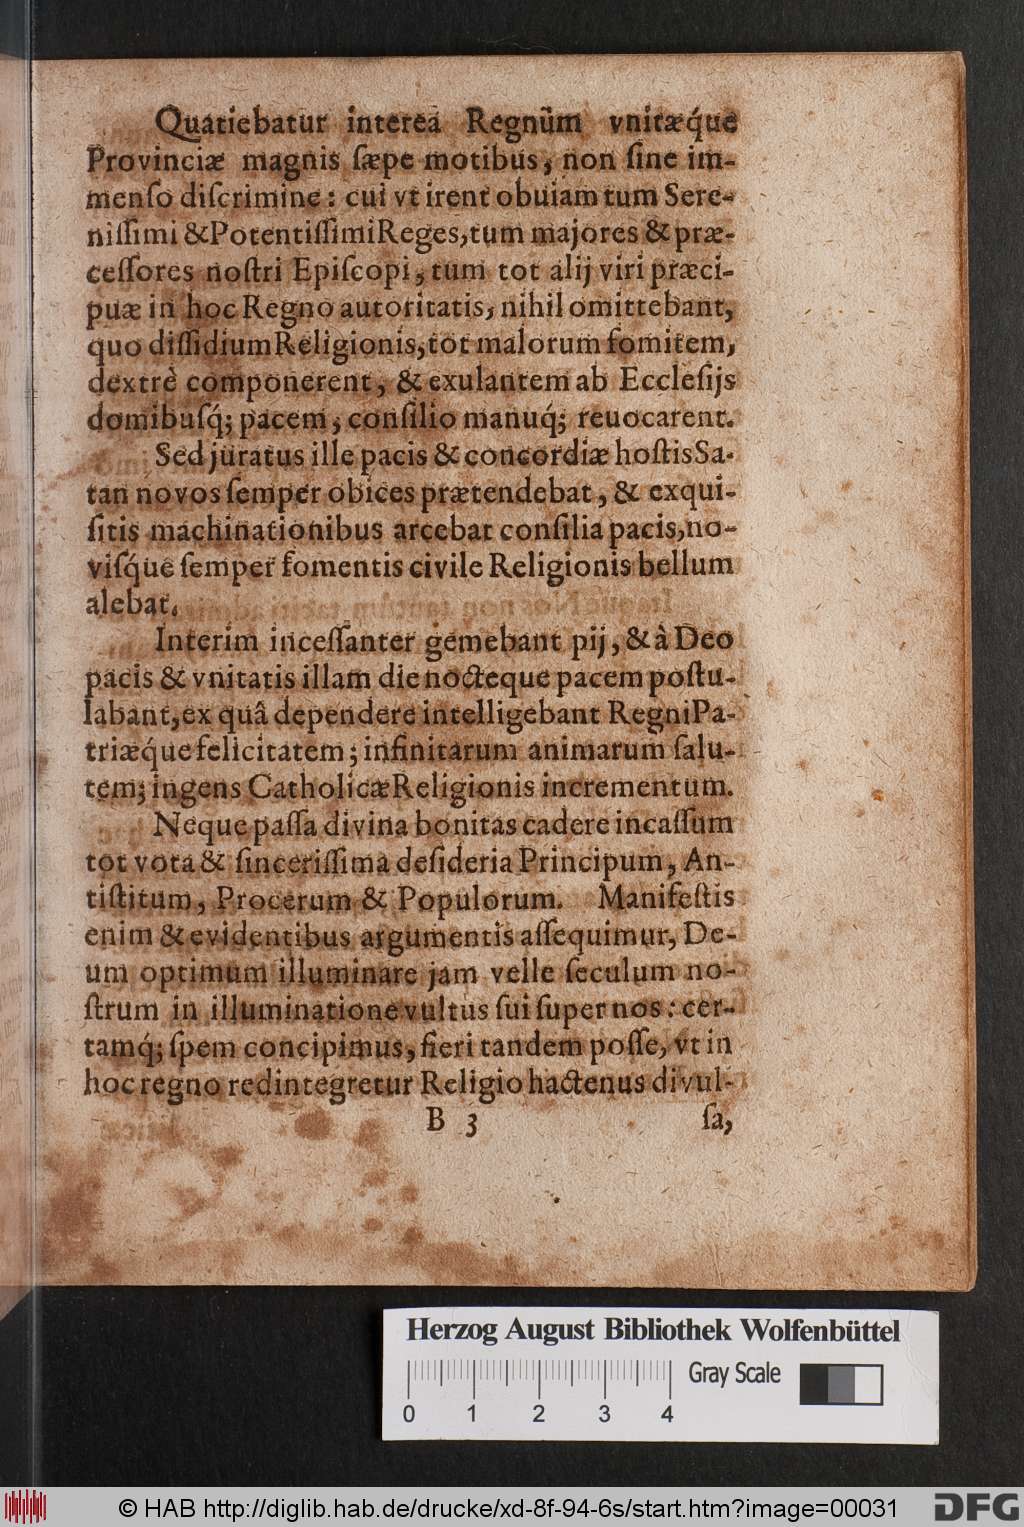 Quatiebatur interea Regnum vnitæq́ue
Provinciæ magnis ſæpe motibus, non ſine im-
menſo diſcrimine: cui vt irent obuiam tum Sere-
niſſimi & Potentiſſimi Reges, tum majores & præ-
ceſſores noſtri Epiſcopi, tum tot alij viri præci-
puæ in hoc Regno autoritatis, nihil omittebant,
quo diſſidium Religionis, tot malorum fomitem,
dextrè componerent, & exulantem ab Eccleſijs
domibuſq́; pacem, conſilio manuq́; reuocarent.
Sed juratus ille pacis & concordiæ hoſtis Sa-
tan novos ſemper obices prætendebat, & exqui-
ſitis machinationibus arcebat conſilia pacis, no-
viſq́ue ſemper fomentis civile Religionis bellum
alebat.
Interim inceſſanter gemebant pij, & à Deo
pacis & vnitatis illam die nocteque pacem poſtu-
labant, ex quâ dependere intelligebant Regni Pa-
triæq́ue felicitatem; infinitarum animarum ſalu-
tem; ingens Catholicæ Religionis incrementum.
Neque paſſa divina bonitas cadere incaſſum
tot vota & ſinceriſſima deſideria Principum, An-
tiſtitum, Procerum & Populorum. Manifeſtis
enim & evidentibus argumentis aſſequimur, De-
um optimum illuminare jam velle ſeculum no-
ſtrum in illuminatione vultus ſui ſuper nos: cer-
tamq́; ſpem concipimus, fieri tandem poſſe, vt in
hoc regno redintegretur Religio hactenus divul-
B 3 ſa,
Herzog August Bibliothek Wolfenbüttel
Gray Scale
0 1 2 3 4
© HAB http://diglib.hab.de/drucke/xd-8f-94-6s/start.htm?image=00031
DFG